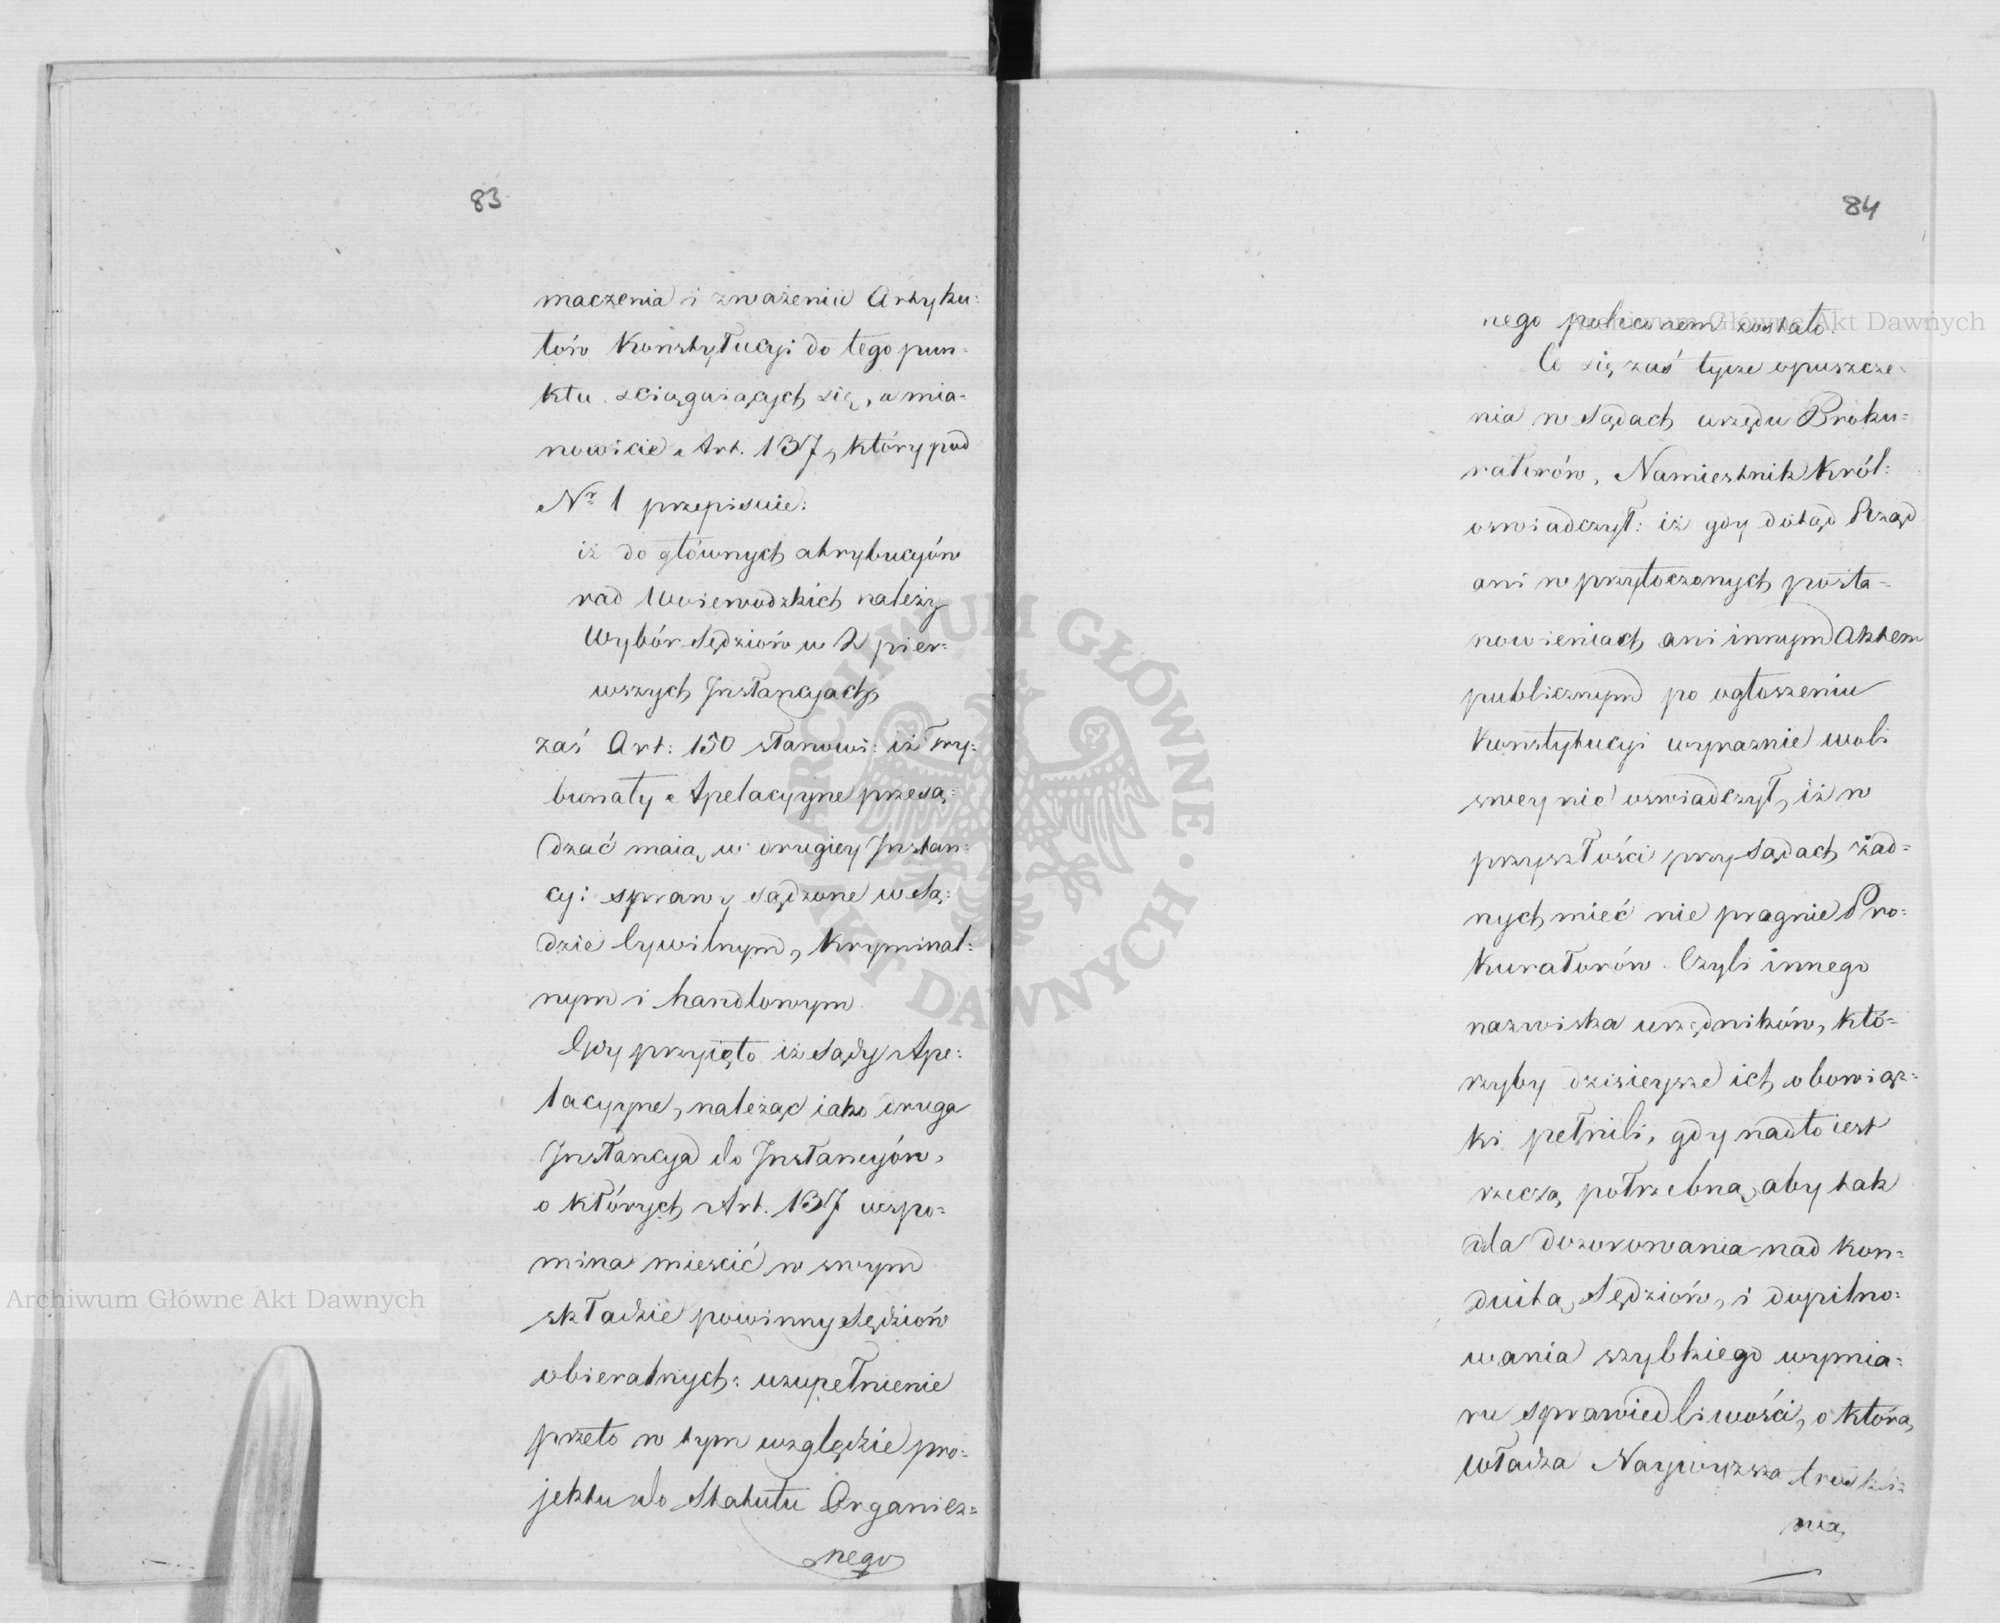 83
maczenia i zważeniu Artyku:
łów Konstytucyi do tego pun:
ktu sciągaiących się, a mia-
nowicie Art. 137, który pod
Nr 1 przepisuie:
iż do głównych atrybucyów
rad Woiewodzkich należy
Wybór Sędziów w 2 pier:
wszych Instancyach,
zaś Art: 150 stanowi: iż Try:
bunały Apelacyjne przesą:
dzać maią w drugiey Instan:
cyi sprawy sądzone w Są:
dzie Cywilnym, Kryminal:
nym i handlowym.
Gdy przyięto iż Sądy Ape:
lacyjne, należąc iako druga
Instancya do Instancyów,
o których Art. 137 wspo=
mina mieścić w swym
składzie powinny Sędziów
obieralnych: uzupełnienie
przeto w tym względzie pro:
jektu do Statutu Organicz=
nego
84
nego poleconem zostało
Co się zaś tycze opuszcze:
nia w Sądach urzędu Proku=
ratorów, Namiestnik Król:
oswiadczył: iż gdy dotąd Rząd
ani w przytoczonych posta=
nowieniach ani innym Aktem
publicznym po ogłoszeniu
Konstytucyi wyraznie woli
swey nie oswiadczył, iż w
przyszłości przy Sądach żad=
nych mieć nie pragnie Pro:
kuratorów Czyli innego
nazwiska urzędników, któ=
rzyby dzisieysze ich obowiąz=
ki pełnili, gdy nadto iest
rzeczą potrzebną, aby tak
dla dozorowania nad kon=
duitą Sędziów, i dopilno:
wania szybkiego wymia:
ru sprawiedliwości, o którą
władza Naywyzsza troskli=
wa,
Archiwum Główne Akt Dawnych
Archiwum Główne Akt Dawnych
ARCHIWUM GŁÓWNE · AKT DAWNYCH ·